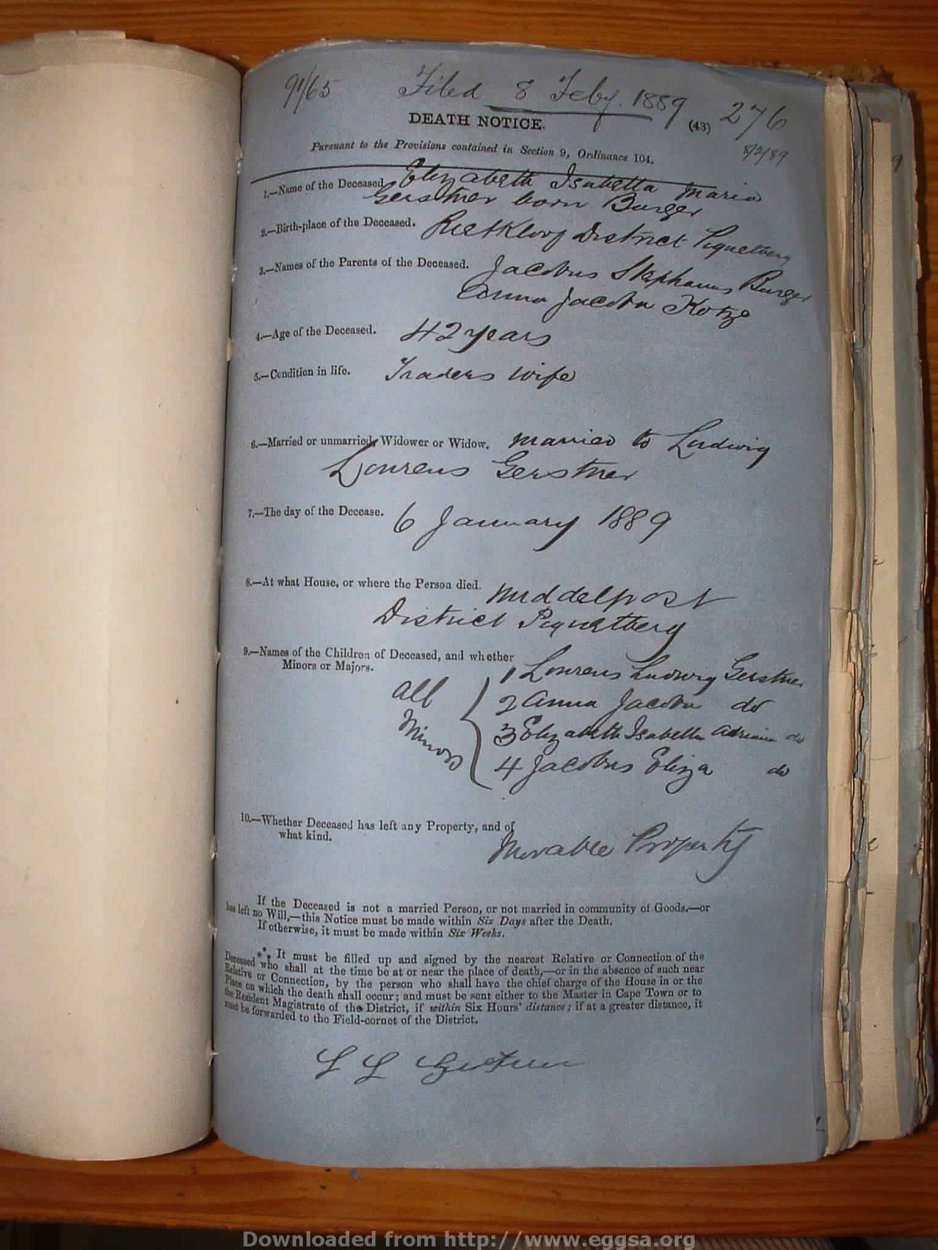 91/65 Filed 8 Feby. 1889 276
DEATH NOTICE. (43)
8/2/89
Pursuant to the Provisions contained in Section 9, Ordinance 104.
1.—Name of the Deceased Elizabeth Isabella Maria
Gerstner born Burger
2.—Birth-place of the Deceased. Rietkloof District Piquetberg
3.—Names of the Parents of the Deceased. Jacobus Stephanus Burger
Anna Jacoba Kotze
4.—Age of the Deceased. 42 years
5.—Condition in life. Traders wife
6.—Married or unmarried, Widower or Widow. Married to Ludwig
Lourens Gerstner
7.—The day of the Decease. 6 January 1889
8.—At what House, or where the Person died. Middelpost
District Piquetberg
9.—Names of the Children of Deceased, and whether
Minors or Majors. 1 Lourens Ludwig Gerstner
all 2 Anna Jacoba do
Minors 3 Elizabeth Isabella Adriana do
4 Jacobus Eliza do
10.—Whether Deceased has left any Property, and of
what kind. Movable Property
If the Deceased is not a married Person, or not married in community of Goods.—or
has left no Will,—this Notice must be made within Six Days after the Death.
If otherwise, it must be made within Six Weeks.
*** It must be filled up and signed by the nearest Relative or Connection of the
Deceased who shall at the time be at or near the place of death,—or in the absence of such near
Relative or Connection, by the person who shall have the chief charge of the House in or the
Place on which the death shall occur; and must be sent either to the Master in Cape Town or to
the Resident Magistrate of the District, if within Six Hours' distance; if at a greater distance, it
must be forwarded to the Field-cornet of the District.
L L Gerstner
Downloaded from http://www.eggsa.org